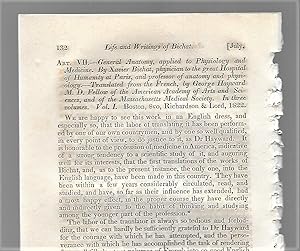 132 Life and Writings of Bichat. [July,
ART. VII.—General Anatomy, applied to Physiology and
Medicine. By Xavier Bichat, physician to the great Hospital
of Humanity at Paris, and professor of anatomy and physi-
ology.—Translated from the French, by George Hayward
M. D. Fellow of the American Academy of Arts and Sci-
ences, and of the Massachusetts Medical Society. In three
volumes. Vol. I. Boston, 8vo, Richardson & Lord, 1822.
We are happy to see this work in an English dress, and
especially so, that the labor of translating it has been perform-
ed by one of our own countrymen, and by one so well qualified,
in every point of view, to do justice to it, as Dr Hayward. It
is honorable to the profession of medicine in America, indicative
of a strong tendency to a scientific study of it, and auguring
well for its interests, that the first translations of the works of
Bichat, and, as to the present instance, the only one, into the
English language, have been made in this country. They have
been within a few years considerably circulated, read, and
studied, and have, so far as their influence has extended, had
a most happy effect, in the proper course they have directly
and indirectly given to the labor of thinking and studying
among the younger part of the profession.
The labor of the translator is always so tedious and forbid-
ding, that we can hardly be sufficiently grateful to Dr Hayward
for the courage with which he has attempted, and the perse-
verance with which he has accomplished the task of rendering